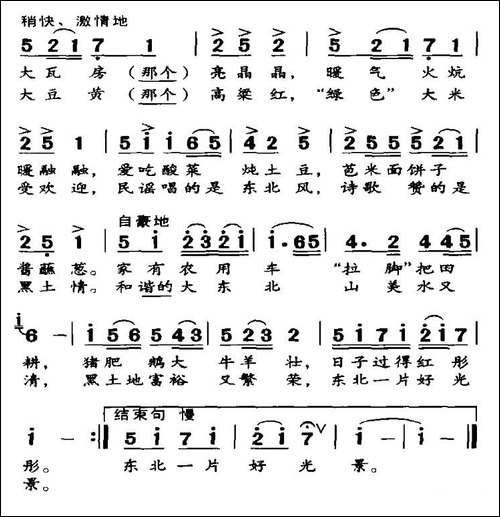 稍快、激情地
5 2 1 7 1 | 2 5 2 | 5 2 1 7 1 |
大瓦房（那个）亮晶晶，暖气火炕
大豆黄（那个）高粱红，“绿色”大米
2 5 1 | 5 i i 6 5 | 4 2 5 | 2 5 5 5 2 1 |
暖融融，爱吃酸菜炖土豆，芭米面饼子
受欢迎，民谣唱的是东北风，诗歌赞的是
自豪地
2 5 1 | 5 i 2 3 2 1 | i· 6 5 | 4· 2 4 4 5 |
酱蘸葱。家有农用车“拉脚”把田
黑土情。和谐的大东北山美水又
i
6 － | i 5 6 5 4 3 | 5 2 3 2 | 5 i 7 i 2 i 7 |
耕，猪肥鹅大牛羊壮，日子过得红彤
清，黑土地富裕又繁荣，东北一片好光
结束句 慢
i － :‖ 5 i 7 i | 2 i 7 V | i － | i － ‖
彤。东北一片好光景。
景。